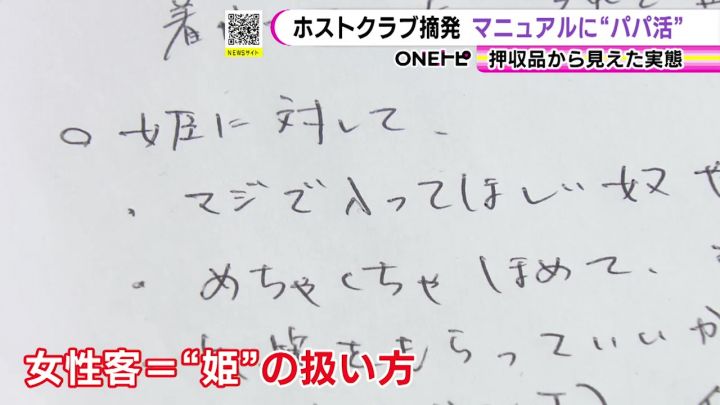 ホストクラブ摘発 マニュアルに“パパ活”
NEWSサイト
ONEトピ 押収品から見えた実態
着
○ 姫に対して、
・マジで入ってほしい奴や
・めちゃくちゃほめて、
をもらっていいか
女性客＝“姫”の扱い方